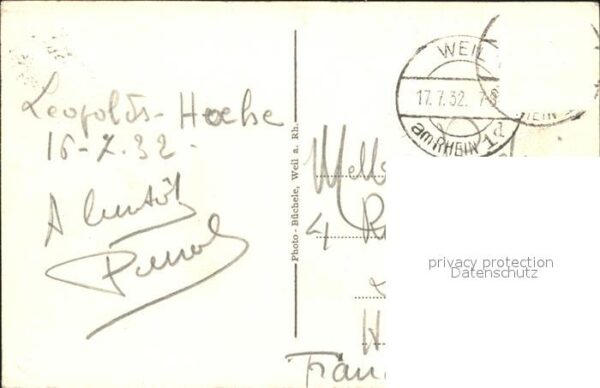 Leopolds-Hoehe
16-7.32-
A bientôt
Photo - Büchele, Weil a. Rh.
WEIL
17.7.32. 7-8
am RHEIN 1 d
Melle
4
privacy protection
Datenschutz
H
Fran